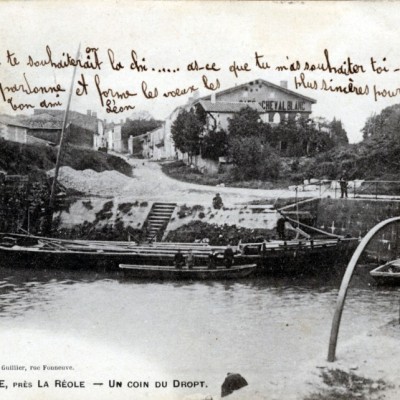 te souhaiterait la chi...... as-ce que tu m'as souhaiter toi-
pardonne et forme les voeux les plus sincères pour
ton ami Léon
CHEVAL BLANC
Guillier, rue Fonneuve.
E, PRÈS LA RÉOLE — UN COIN DU DROPT.